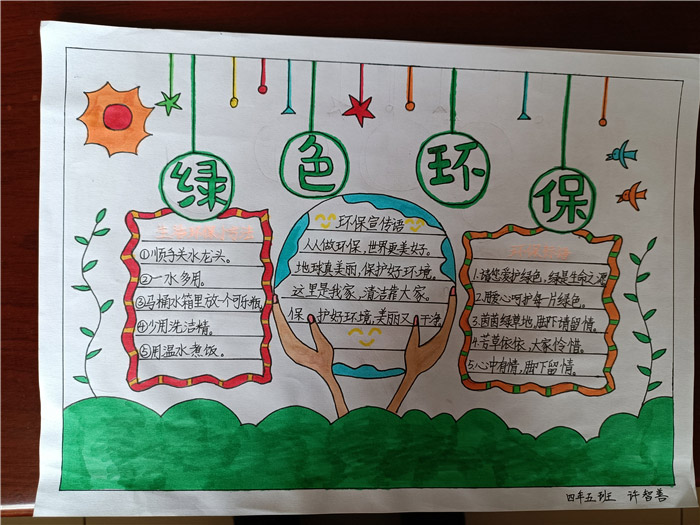 绿色环保
①顺手关水龙头。
②一水多用。
③马桶水箱里放一个可乐瓶
④少用洗洁精。
⑤用温水煮饭。
环保宣传语
人人做环保,世界更美好。
地球真美丽,保护好环境,
这里是我家,清洁靠大家。
保护好环境,美丽又干净
1.请您爱护绿色,绿是生命之源
2.用爱心呵护每一片绿色。
3.茵茵绿草地,脚下请留情。
4.芳草依依,大家怜惜。
5.心中有情,脚下留情。
四年五班 许智善